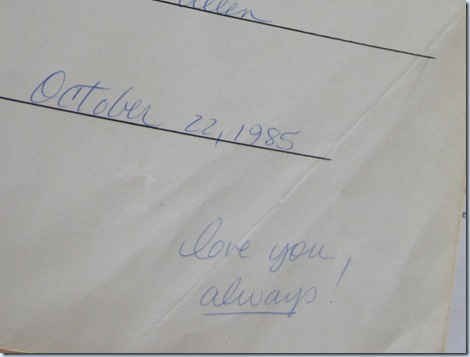 October 22, 1985
love you,
always!